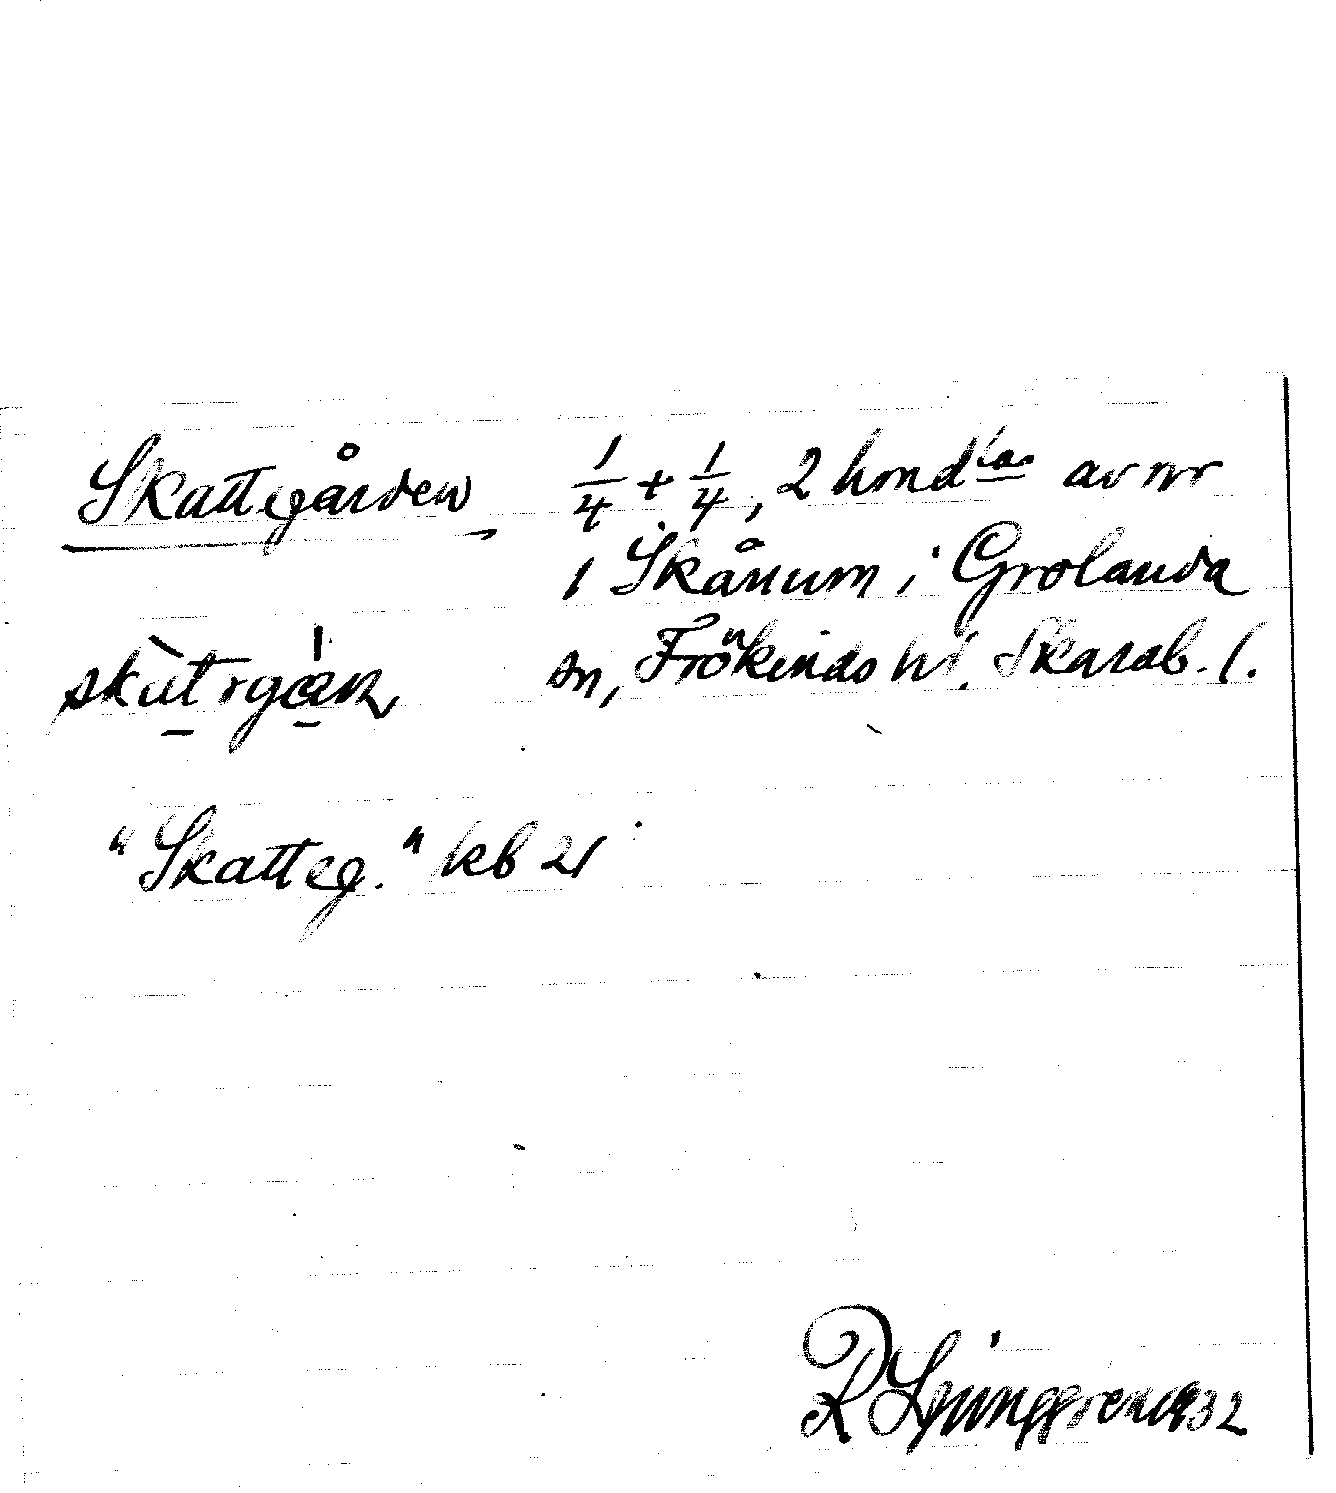 Skattegården 1/4 + 1/4, 2 hmd:la av nr
1 Skånum i Grolanda
sn, Frökinds hd. Skarab. l.
"Skatteg." kb 21
R Ljunggren 1932